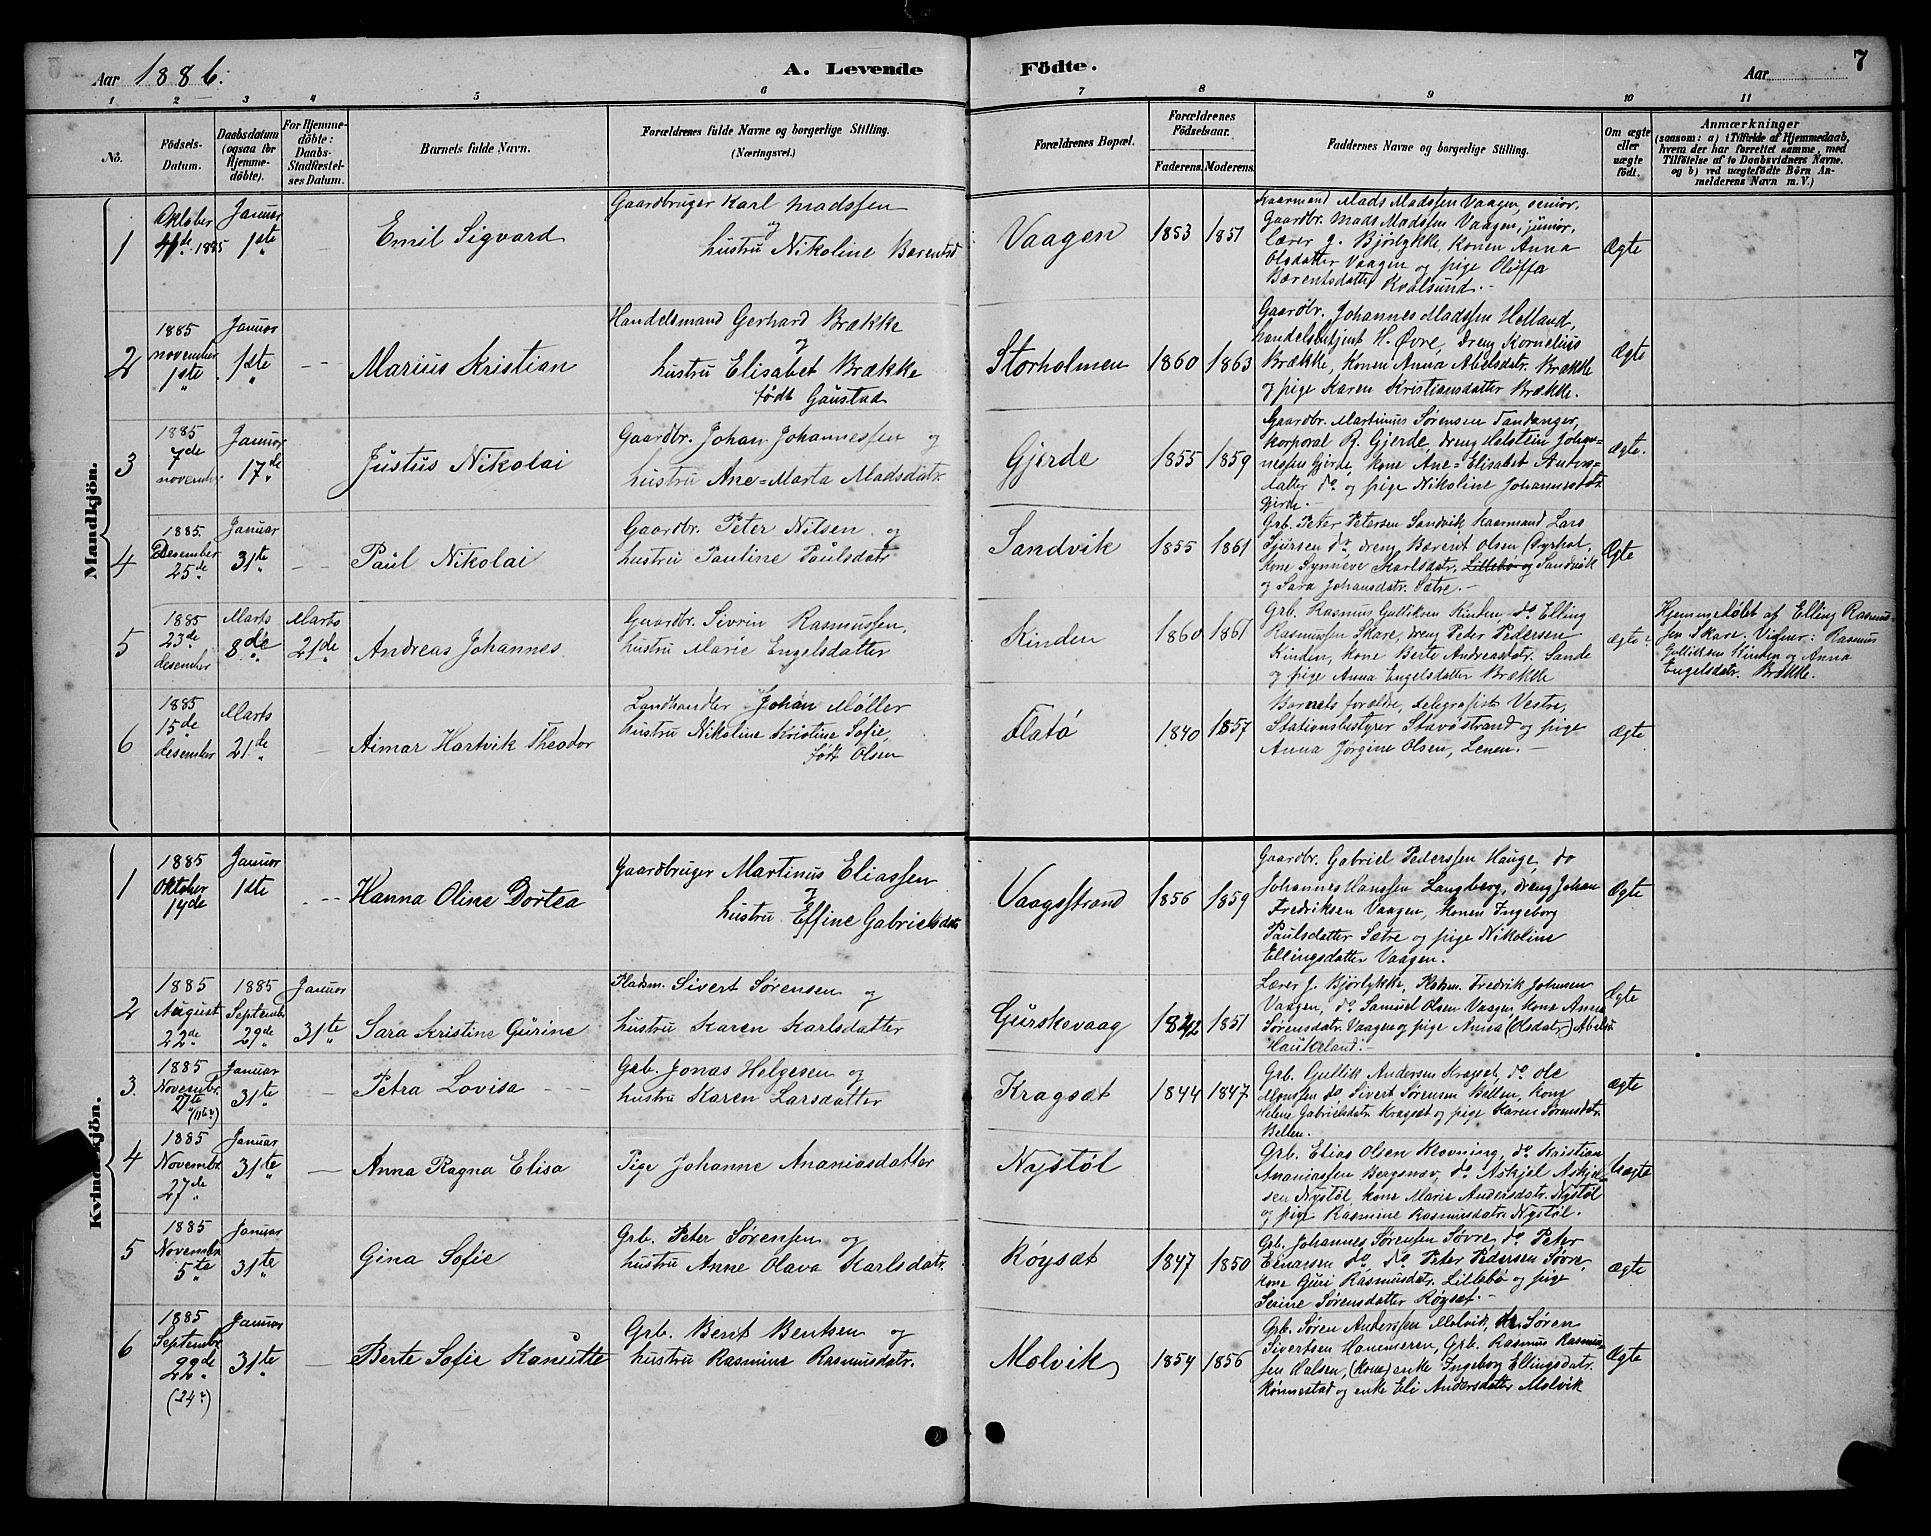 Aar 1886.
A. Levende
Födte.
Aar
7
1
2
3
4
5
6
7
8
9
10
11
No.
Födsels-
Datum.
Daabsdatum
(ogsaa for
Hjemme-
döbte).
For Hjemme-
döbte:
Daabs-
Stadfæstel-
ses Datum.
Barnets fulde Navn.
Forældrenes fulde Navne og borgerlige Stilling.
(Næringsvei.)
Forældrenes Bopæl.
Forældrenes
Födselsaar.
Faderens.
Moderens.
Faddernes Navne og borgerlige Stilling.
Om ægte
eller
uægte
födt.
Anmærkninger
(saasom: a) i Tilfælde af Hjemmedaab,
hvem der har forrettet samme, med
Tilföielse af to Daabsvidners Navne.
og b) ved uægtefödte Börn An-
melderens Navn m. V.)
Mandkjön.
1
Oktober
1885
Januar
1ste
Emil Sigvard
Gaardbruger Karl Madssen
og
hustru Nikoline Barentsd
Vaagen
1853
1851
Kaarmand Mads Madssen Vaagen, senior,
Gaardbr. Mads Madssen Vaagen, junior,
Lærer J. Bjørlykke, Konen Anna
Olsdatter Vaagen og pige Oluffa
Bærentsdatter Kvalsund.-
Ægte
2
1885
november
1ste
Januar
1ste
Marius Kristian
Handelsmand Gerhard Brække
og
hustru Elisabet Brække
født Gaustad
Storholmen
1860
1863
Gaardbr. Johannes Madssen Holland,
handelsbetjent H. Øvre, dreng Kornelius
Brække, Konen Anna Abelsdatr. Brække
og pige Karen Kristiansdatter Brække.
Ægte
3
1885
7de
november
Januar
17de
Justus Nikolai
Gaardbr. Johan Johannessen og
hustru Ane-Marta Madsdatr.
Gjerde
1855
1859
Gaardbr. Martinus Sørensen Tandanger,
Korporal R. Gjerde, dreng Halstein Johan-
nessen Gjerde, kone Ane-Elisabet Antons-
datter do og pige Nikoline Johannesdtr.
Gjerde.-
Ægte.
4
1885.
Desember
25de
Januar
31te
Paul Nikolai
Gaardbr. Peter Nilsen og
hustru Pauline Paulsdatr
Sandvik
1855
1861
Grb. Peter Petersen Sandvik, Kaarmand Lars
Sjursen do, dreng Bærent Olsen Dyrhol,
Kone Synneve Karlsdatr. Lillebø og Sandvik
og Sara Johansdatr. Sætre.-
Ægte
5
1885
23de
desember
Marts
8de
Marts
21de
Andreas Johannes
Gaardbr. Sivrin Rasmussen,
hustru Marie Engelsdatter
Kinden
1860
1861
Grb. Rasmus Gulliksen Kinden do Elling
Rasmussen Skare, dreng Peder Pedersen
Kinden, kone Berte Andreasdatr. Sande
og pige Anna Engelsdatter Brække
ægte
Hjemmedøbt af Elling Rasmus-
sen Skare. Vidner: Rasmus
Gulliksen Kinden og Anna
Engelsdatr. Brække.
6
1885
15de
desember
Marts
21de
Aimar Hartvik Theodor
Landhandler Johan Møller
hustru Nikoline Kristine Sofie,
født Olsen
Flatø
1840
1857
Barnets forældre, telegrafist Vestre,
Stationsbestyrer Stavøstrand og pige
Anna Jørgine Olsen, Lenen.-
Ægte
Kvindekjön.
1
1885
Oktober
14de
Januar
1ste
Hanna Oline Dortea
Gaardbruger Martinus Eliassen
og
hustru Effine Gabrielsdatr
Vaagsstrand
1856
1859
Gaardbr. Gabriel Pederssen Hauge, do
Johannes Hanssen Langberg, dreng Johan
Fredriksen Vaagen, Konen Ingeborg
Paulsdatter Sætre og pige Nikoline
Ellingsdatter Vaagen.
Ægte
2
1885
August
22de
1885
Septembr
29de
Januar
31te
Sara Kristine Gurine
Pladsm. Sivert Sørensen og
hustru Karen Karlsdatter
Gurskevaag
1842
1851
Lærer J. Bjørlykke, Pladsm. Fredrik Johnsen
Vaagen, do Samuel Olsen Vaagen, kone Anna
Sørensdatr. Vaagen og pige Anna (Olsdatr)
Haukeland.-
Ægte
3.
1885
Novembr.
Januar
31te
Petra Lovisa
Grb. Jonas Helgesen og
hustru Karen Larsdatter
Kragsæt
1844
1847
Grb. Gullik Andersen Kragset, do Ole
Monssen do Sivert Sørensen Belten, kone
Helene Gabrielsdatr Kragsæt og pige Karen Sørensdatr.
Belten.
Ægte
4
1885
Novembr.
27de
Januar
31te
Anna Ragna Elisa
Pige Johanne Ananiasdatter
Nystøl
Grb. Elias Olsen Klovning, do Kristian
Ananiassen Bergsnæv, do Askjel Askjel-
sen Nystøl, kone Marie Andersdatr. Nystøl
og pige Rasmine Rasmusdatr. Nystøl.
Uægte
5
1885
Novembr.
5te
Januar
31te
Gina Sofie
Grb. Peter Sørensen og
hustru Anne Olava Karlsdatr.
Røysæt
1847
1850
Grb. Johannes Sørensen Søvre, do Peter
Einarsen do, do Peter Pedersen Søvre,
kone Guri Rasmusdatr. Lillebø og pige
Serine Sørensdatter Røysæt.-
Ægte
6
1885
Septembr.
22de
(24?)
Januar
31te
Berte Sofie Kanutte
Grb. Bent Bentsen og
hustru Rasmine Rasmusdatr.
Molvik
1854
1856
Grb. Søren Anderssen Molvik, Søren
Sivertsen Hammeren, Grb. Rasmus Rasmus-
sen Halsen, (kone) enke Ingeborg Ellingsdatr.
Rønnestad og enke Eli Andersdatter Molvik
Ægte